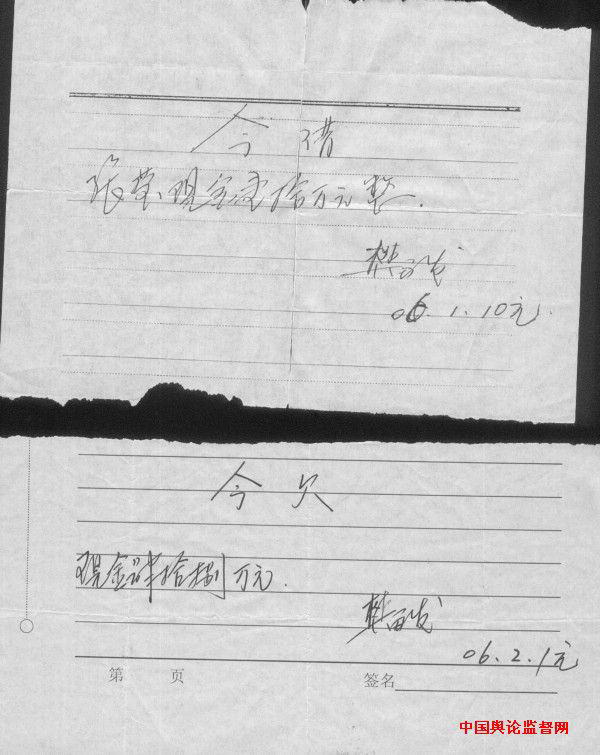 今借
张荣现金 拾万元整.
樊
06.1.10元.
今欠
现金 拾捌万元.
06.2.1元
第 页
签名
中国舆论监督网